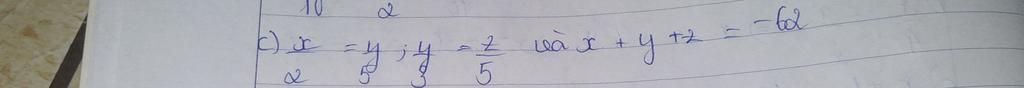 10 2
c) x/2 = y/5 ; y/3 = z/5 và x + y + z = -62